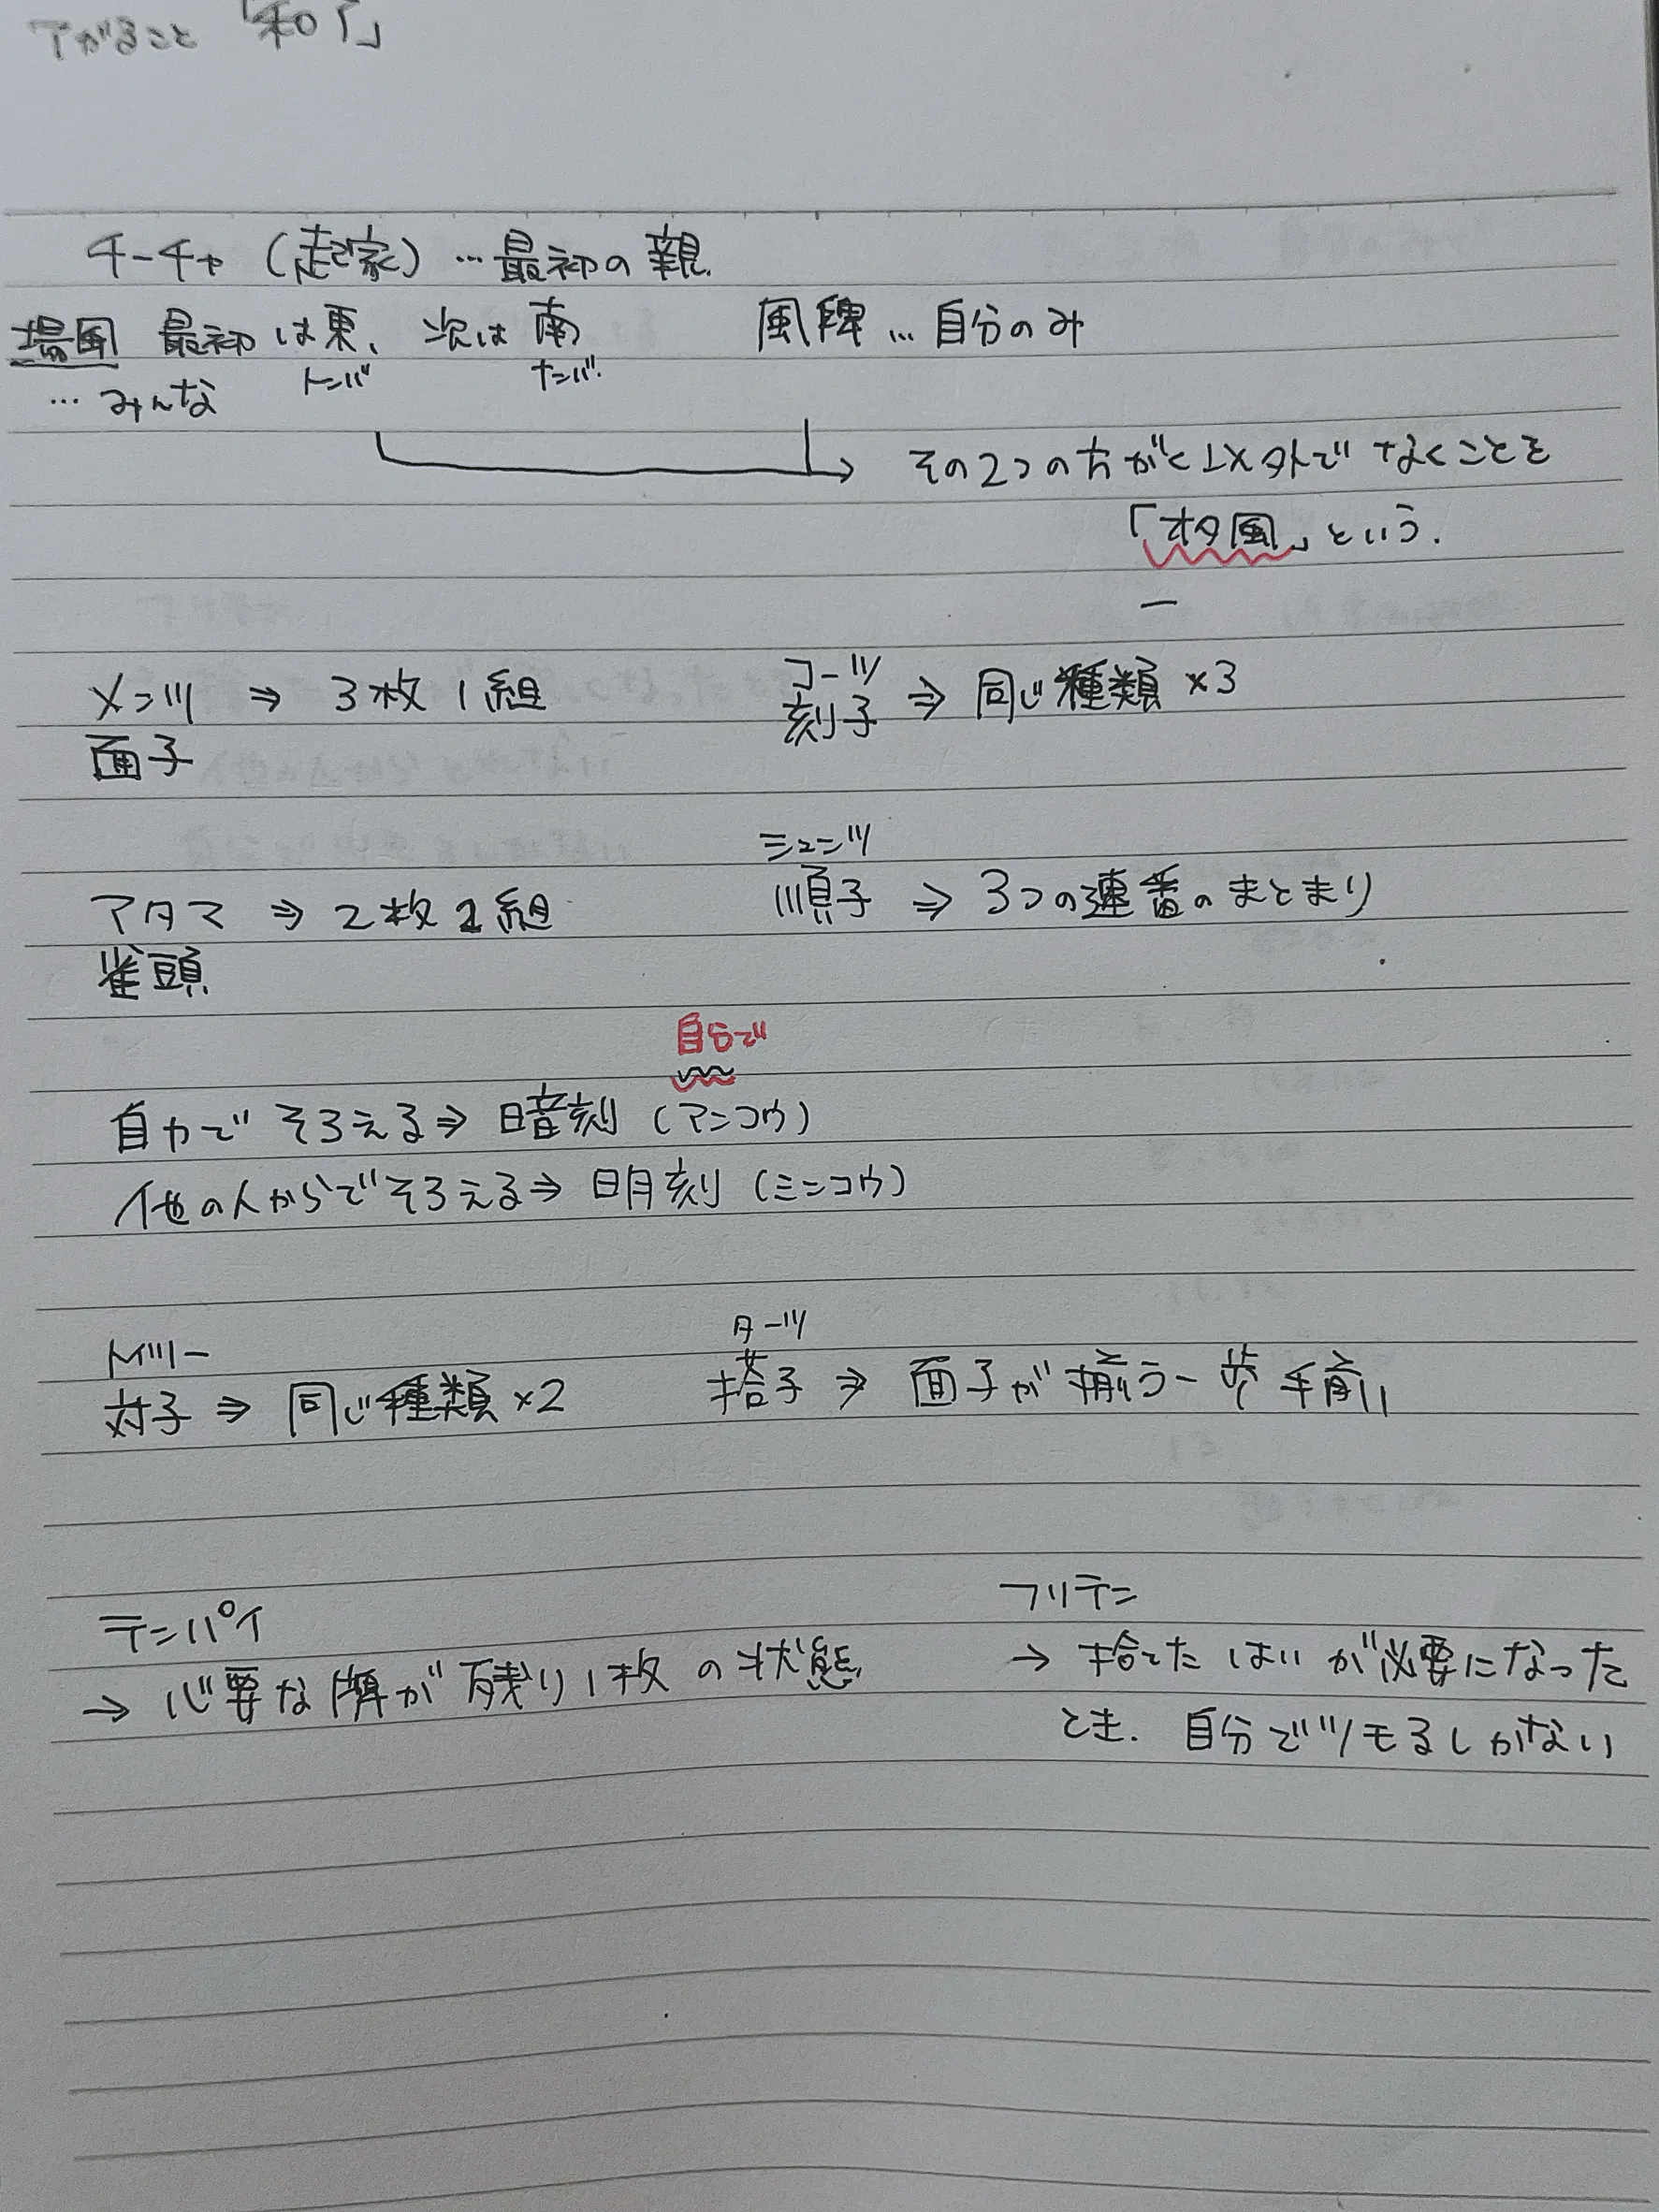 アがること「和了」
チーチャ(起家)…最初の親.
場風 最初は東、次は南 風牌…自分のみ
トンバ ナンバ.
…みんな
その2つの方がく以外でなくことを
「オタ風」という.
メンツ ⇒ 3枚1組
面子
コーツ
刻子 ⇒ 同じ種類×3
シュンツ
順子 ⇒ 3つの連番のまとまり
アタマ ⇒ 2枚1組
雀頭
自分で
自力でそろえる⇒暗刻(アンコウ)
他の人からでそろえる⇒明刻(ミンコウ)
トイツー
対子 ⇒ 同じ種類×2
ターツ
搭子 ⇒ 面子が揃う一歩手前
テンパイ
→ 必要な牌が残り1枚の状態
フリテン
→ 捨てたはいが必要になった
とき. 自分でツモるしかない